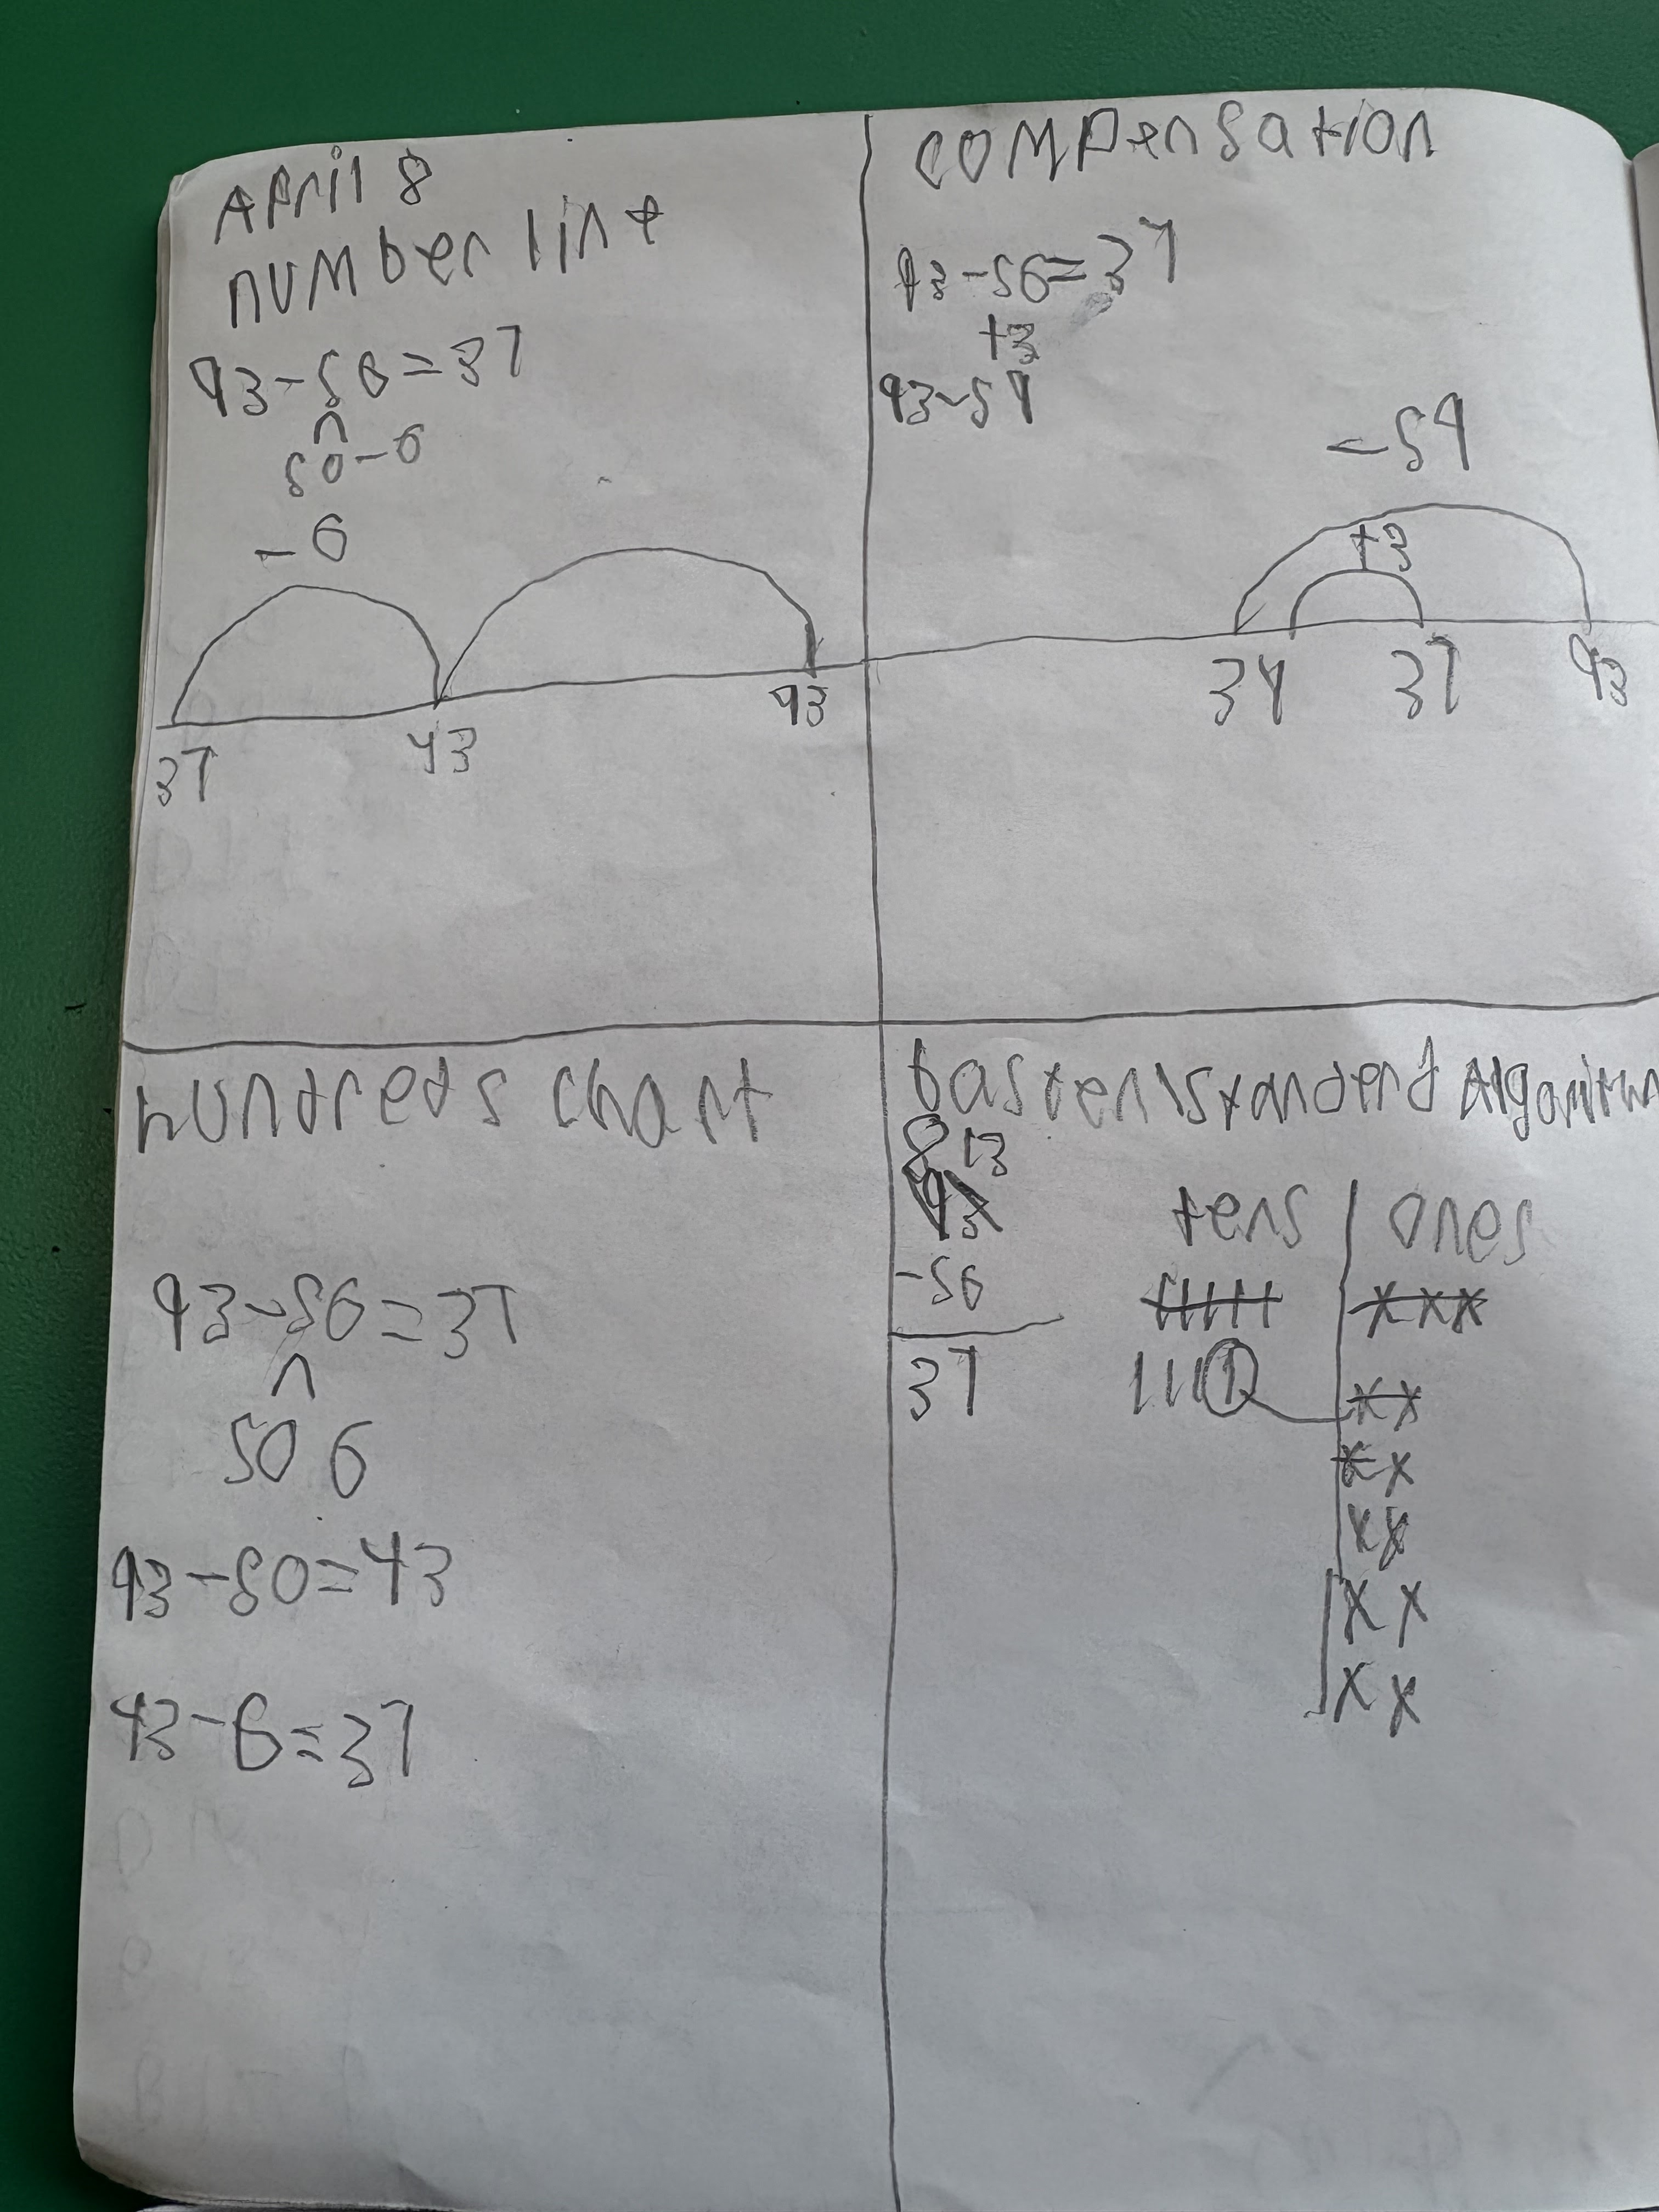 April 8
number line
93-56=37
50-6
-6
37 43 93
compensation
93-56=37
+3
93-59
-59
+3
34 37 93
hundreds chart
93-56=37
50 6
93-50=43
43-6=37
8 13
93
-56
37
tens ones